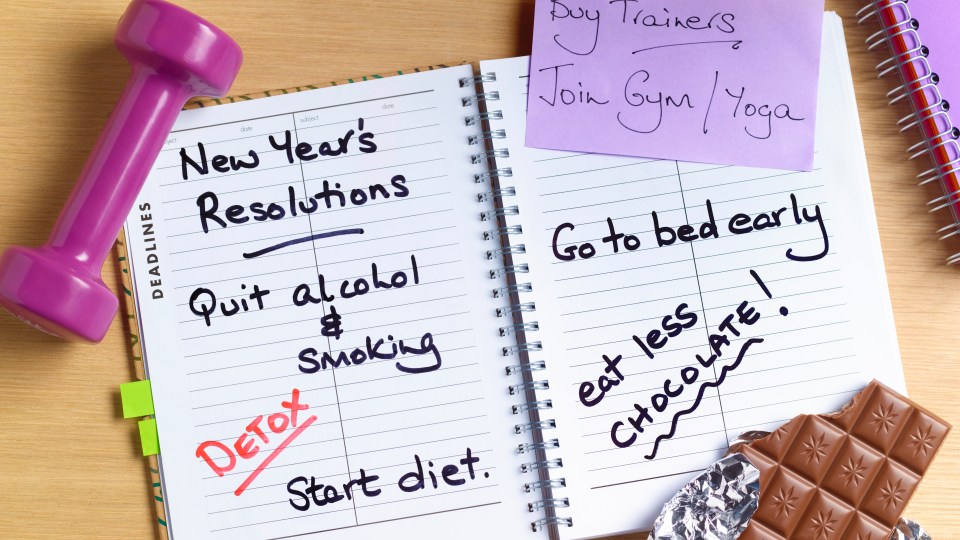 date
subject
date
DEADLINES
New Year's
Resolutions
Quit alcohol
&
Smoking
DETOX
Start diet.
Buy Trainers
Join Gym / Yoga
Go to bed early
eat less
CHOCOLATE!